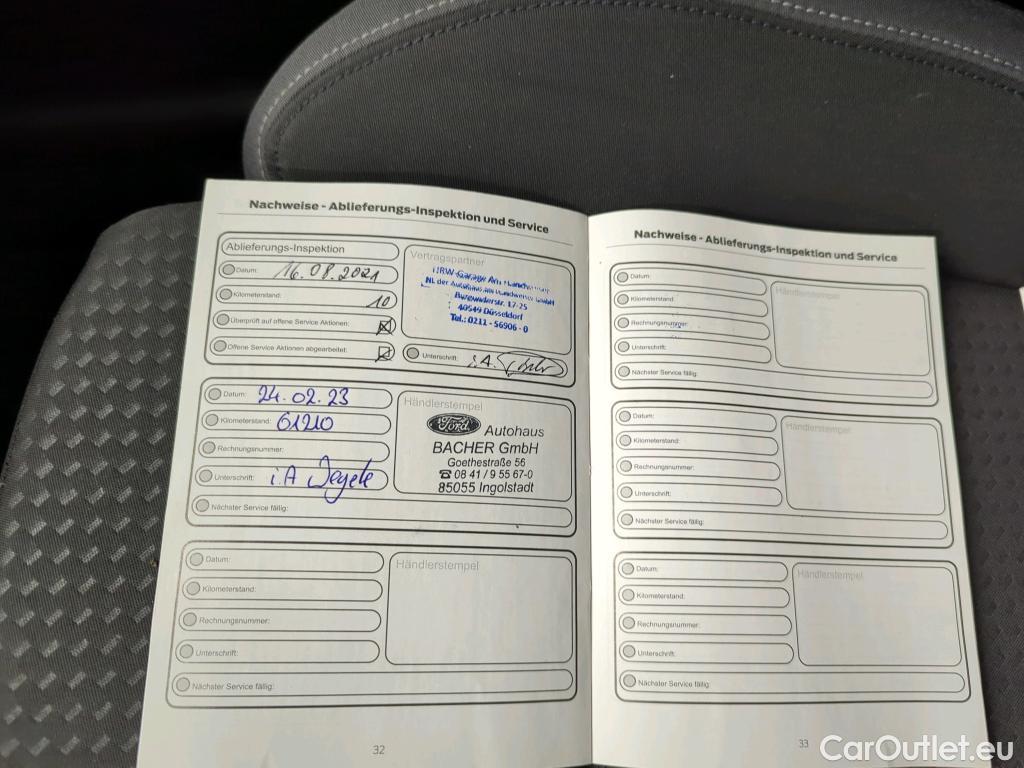 Nachweise - Ablieferungs-Inspektion und Service
Ablieferungs-Inspektion
Datum: 16.08.2021
Kilometerstand: 10
Überprüft auf offene Service Aktionen:
Offene Service Aktionen abgearbeitet:
Vertragspartner
NRW-Garage
NL der Autohaus am Handweiser GmbH
Burgunderstr. 17-25
40549 Düsseldorf
Tel.: 0211 - 56906 - 0
Unterschrift: i.A.
Datum: 24.02.23
Kilometerstand: 61210
Rechnungsnummer:
Unterschrift: i.A
Nächster Service fällig:
Händlerstempel
Ford Autohaus
BACHER GmbH
Goethestraße 56
☎ 08 41 / 9 55 67-0
85055 Ingolstadt
Datum:
Kilometerstand:
Rechnungsnummer:
Unterschrift:
Nächster Service fällig:
Händlerstempel
32
Nachweise - Ablieferungs-Inspektion und Service
Datum:
Kilometerstand:
Rechnungsnummer:
Unterschrift:
Nächster Service fällig:
Händlerstempel
Datum:
Kilometerstand:
Rechnungsnummer:
Unterschrift:
Nächster Service fällig:
Händlerstempel
Datum:
Kilometerstand:
Rechnungsnummer:
Unterschrift:
Nächster Service fällig:
Händlerstempel
33
CarOutlet.eu